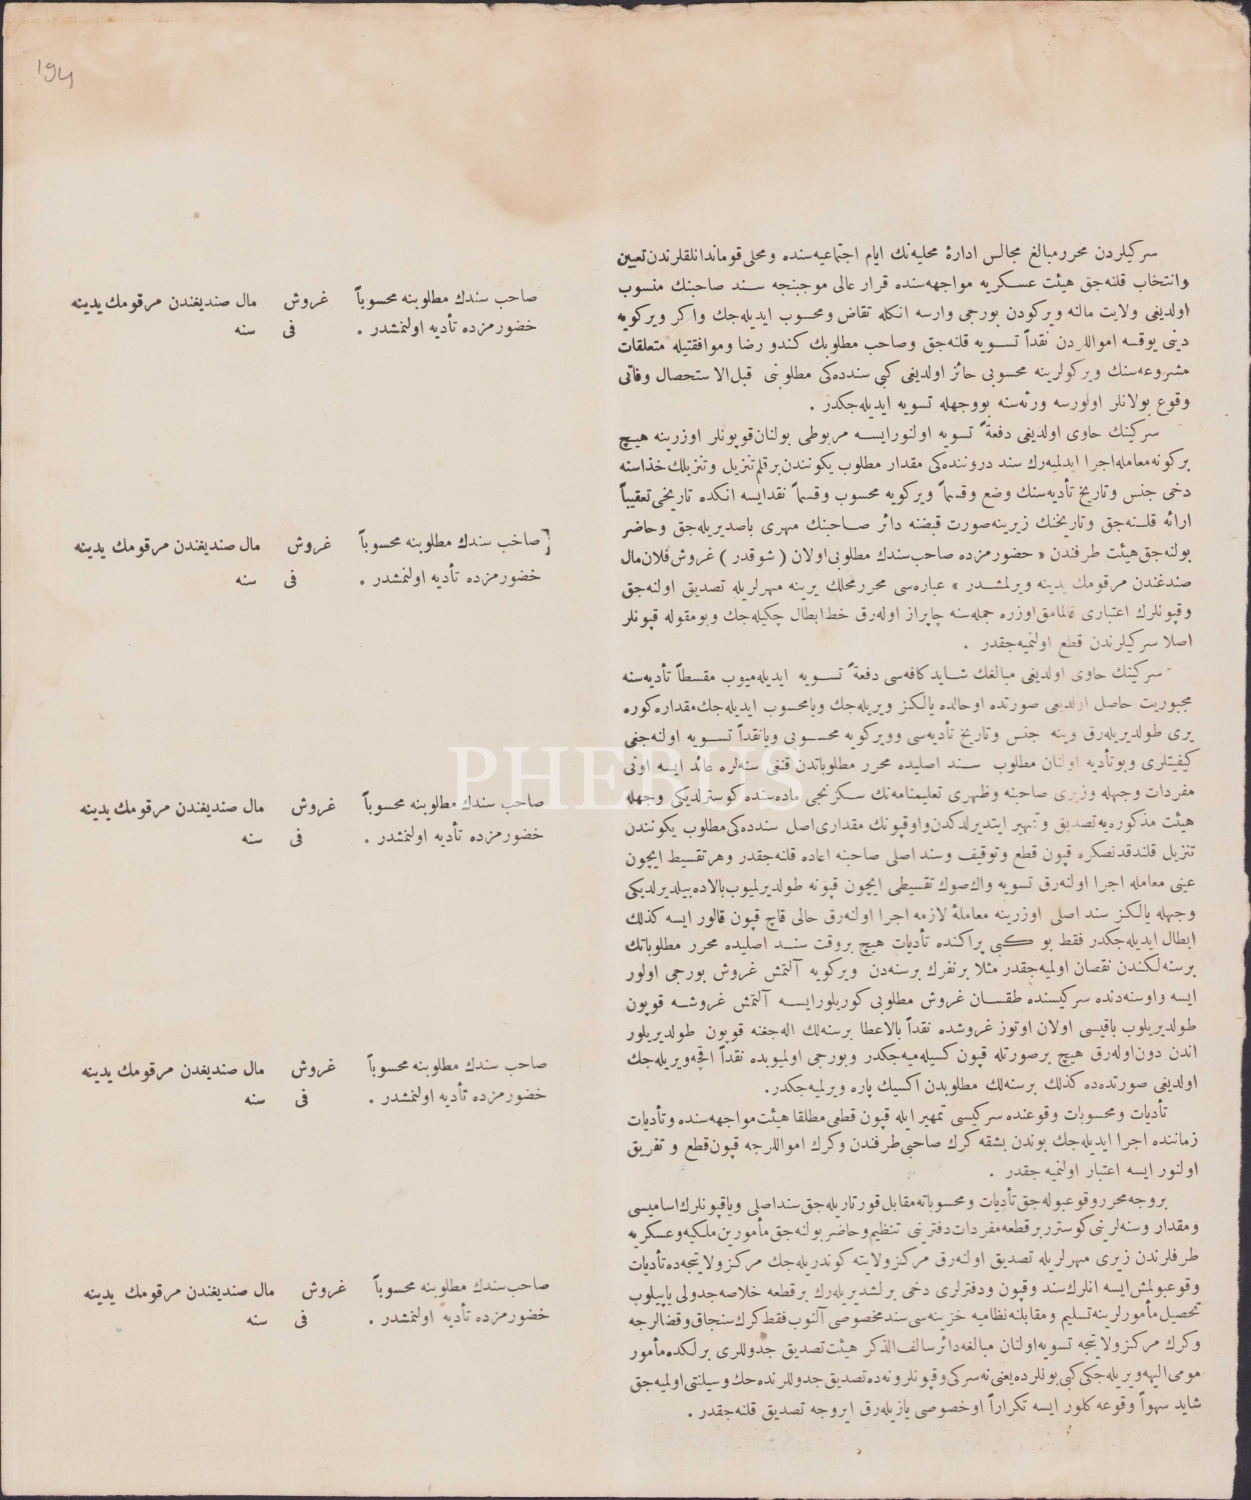 194
سركيلردن محرر مبالغ مجالس ادارهٔ محليه‌نك ايام اجتماعيه‌سنده و محلى قوماندانلقلرندن تعيين
وانتخاب قلنه‌جق هيئت عسكريه مواجهه‌سنده قرار عالى موجبنجه سند صاحبنك منسوب
اولديغى ولايت مالنه ويركودن بورجى وارسه انكله تقاص ومحسوب ايديله‌جك واكر ويركويه
دينى يوقسه اموالدن نقداً تسويه قلنه‌جق وصاحب مطلوبك كندو رضا وموافقتيله متعلقات
مشروعه‌سنك ويركولرينه محسوبى حائز اولديغى كبى سندده‌كى مطلوبنى قبل الاستحصال وفاتى
وقوع بولانلر اولورسه ورثه‌سنه بووجهله تسويه ايديله‌جكدر .
سركينك حاوى اولديغى دفعةً تسويه اولنورايسه مربوطى بولنان قوپونلر اوزرينه هيچ
بركونه معامله اجرا ايدلميه‌رك سند دروننده‌كى مقدار مطلوب يكونندن برقلم تنزيل وتنزيلك خذاسنه
دخى جنس وتاريخ تأديه‌سنك وضع وقسماً ويركويه محسوب وقسماً نقدايسه انكده تاريخى تعقيباً
ارائه قلنه‌جق وتاريخنك زيرينه صورت قبضنه دائر صاحبنك مهرى باصديريله‌جق وحاضر
بولنه‌جق هيئت طرفندن « حضورمزده صاحب سندك مطلوبى اولان ( شوقدر ) غروش فلان مال
صندغندن مرقومك يدينه ويرلمشدر » عباره‌سى محرر محلك يرينه مهرلريله تصديق اولنه‌جق
وقپونلرك اعتبارى قالمامق اوزره جمله‌سنه چاپراز اوله‌رق خط ابطال چكيله‌جك وبومقوله قپونلر
اصلا سركيلرندن قطع اولنميه‌جقدر .
سركينك حاوى اولديغى مبالغك شايد كافه‌سى دفعةً تسويه ايديله‌ميوب مقسطاً تأديه‌سنه
مجبوريت حاصل اولديغى صورتده اوحالده يالكز ويريله‌جك ويامحسوب ايديله‌جك مقداره كوره
يرى طولديريله‌رق وينه جنس وتاريخ تأديه‌سى وويركويه محسوبى ويانقداً تسويه اولنه‌جغى
كيفيتلرى وبوتأديه اولنان مطلوب سند اصليده محرر مطلوباتدن قنغى سنه‌لره عائد ايسه اونى
مفردات وجهله وزيرى صاحبنه وظهرى تعليمنامه‌نك سكزنجى ماده‌سنده كوسترلديكى وجهله
هيئت مذكوره‌يه تصديق وتمهير ايتديرلدكدن واوقپونك مقدارى اصل سندده‌كى مطلوب يكونندن
تنزيل قلندقدنصكره قپون قطع وتوقيف وسند اصلى صاحبنه اعاده قلنه‌جقدر وهرتقسيط ايچون
عينى معامله اجرا اولنه‌رق تسويه واك صوك تقسيطى ايچون قپونه طولديرلميوب بالاده بيلديرلديكى
وجهله يالكز سند اصلى اوزرينه معاملهٔ لازمه اجرا اولنه‌رق حالى قاچ قپون قالور ايسه كذلك
ابطال ايديله‌جكدر فقط بو كبى پراكنده تأديات هيچ بروقت سند اصليده محرر مطلوباتك
برسنه‌لكندن نقصان اولميه‌جقدر مثلا برنفرك برسنه‌دن ويركويه آلتمش غروش بورجى اولور
ايسه واوسنه‌دنده سركيسنده طقسان غروش مطلوبى كوريلورايسه آلتمش غروشه قوپون
طولديريلوب باقيسى اولان اوتوز غروشده نقداً بالاعطا برسنه‌لك اله‌جغنه قوپون طولديريلور
اندن دون اوله‌رق هيچ برصورتله قپون كسيله‌ميه‌جكدر وبورجى اولميوبده نقداً اقچه ويريله‌جك
اولديغى صورتده‌ده كذلك برسنه‌لك مطلوبدن اكسيك پاره ويرلميه‌جكدر.
تأديات ومحسوبات وقوعنده سركيسى تمهير ايله قپون قطعى مطلقا هيئت مواجهه‌سنده وتأديات
زماننده اجرا ايديله‌جك بوندن بشقه كرك صاحبى طرفندن وكرك اموالرجه قپون قطع و تفريق
اولنور ايسه اعتبار اولنميه جقدر .
بروجه محرر وقوعبوله‌جق تأديات ومحسوباته مقابل قورتاريله‌جق سند اصلى وياقپونلرك اساميسى
ومقدار وسنه‌لرينى كوستر برقطعه مفردات دفترينى تنظيم وحاضر بولنه‌جق مأمورين ملكيه وعسكريه
طرفلرندن زيرى مهرلريله تصديق اولنه‌رق مركز ولايته كوندريله‌جك مركز ولايتجه‌ده تأديات
وقوعبولمش ايسه انلرك سند وقپون ودفترلرى دخى برلشديريله‌رك برقطعه خلاصه جدولى ياپيلوب
تحصيل مأمورلرينه تسليم ومقابلنه نظاميه خزينه‌سى سند مخصوصى آلنوب فقط كرك سنجاق وقضالرجه
وكرك مركز ولايتجه تسويه اولنان مبالغه دائر سالف الذكر هيئت تصديق جدوللرى برلكده مأمور
مومى اليهه ويريله‌جكى كبى بونلرده يعنى نه سركى وقپونلر ونه‌ده تصديق جدوللرنده حك وسيلنتى اولميه‌جق
شايد سهواً وقوعه كلور ايسه تكراراً اوخصوصى يازيله‌رق ايروجه تصديق قلنه‌جقدر .
صاحب سندك مطلوبنه محسوباً غروش مال صنديغندن مرقومك يدينه
حضورمزده تأديه اولنمشدر . فى سنه
صاحب سندك مطلوبنه محسوباً غروش مال صنديغندن مرقومك يدينه
حضورمزده تأديه اولنمشدر . فى سنه
صاحب سندك مطلوبنه محسوباً غروش مال صنديغندن مرقومك يدينه
حضورمزده تأديه اولنمشدر . فى سنه
صاحب سندك مطلوبنه محسوباً غروش مال صنديغندن مرقومك يدينه
حضورمزده تأديه اولنمشدر . فى سنه
صاحب سندك مطلوبنه محسوباً غروش مال صنديغندن مرقومك يدينه
حضورمزده تأديه اولنمشدر . فى سنه
PHEBUS